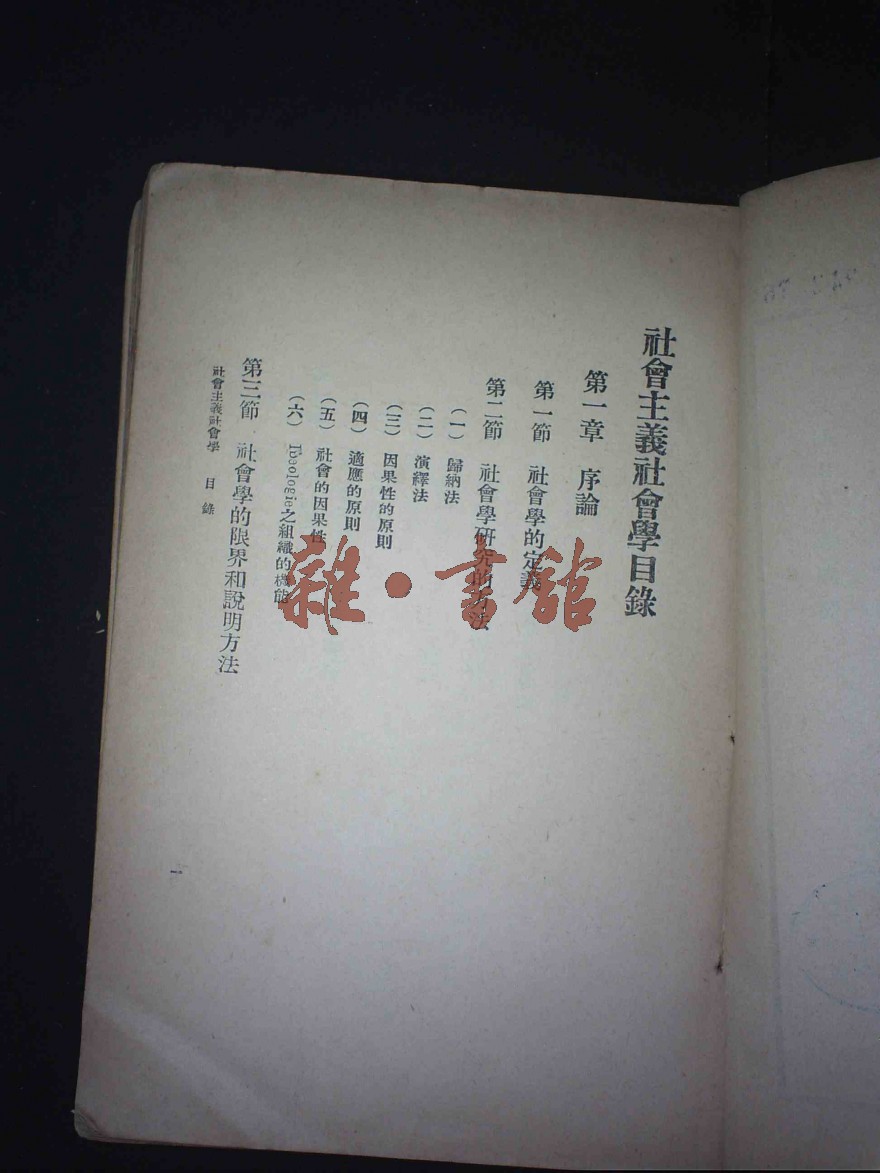 社會主義社會學目錄
第一章 序論
第一節 社會學的定義
第二節 社會學研究的方法
(一) 歸納法
(二) 演繹法
(三) 因果性的原則
(四) 適應的原則
(五) 社會的因果性
(六) Ideologie之組織的機能
第三節 社會學的限界和說明方法
社會主義社會學 目錄
一
雜·書館